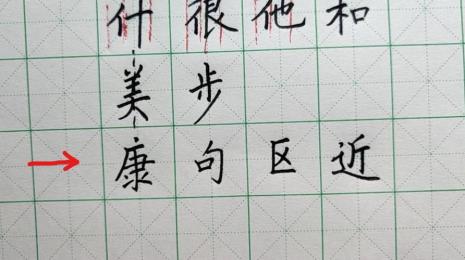 什很他和
美步
康句区近